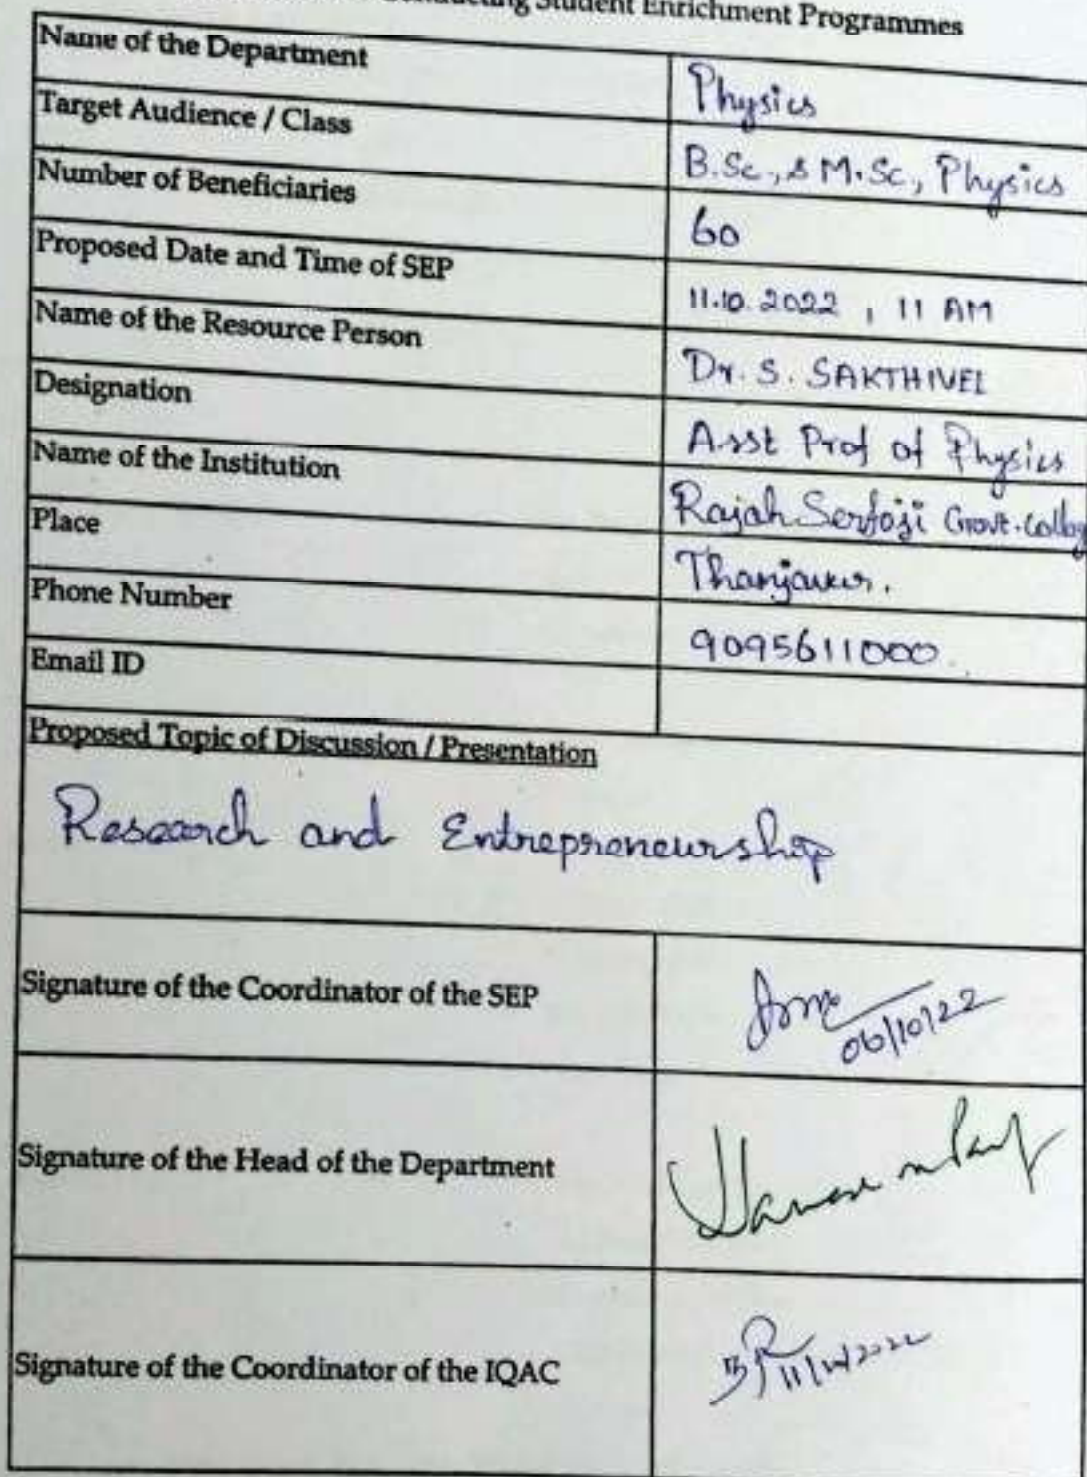 Conducting Student Enrichment Programmes
Name of the Department Physics
Target Audience / Class B.Sc., & M.Sc., Physics
Number of Beneficiaries 60
Proposed Date and Time of SEP 11.10.2022 , 11 AM
Name of the Resource Person Dr. S. SAKTHIVEL
Designation Asst Prof of Physics
Name of the Institution Rajah Serfoji Govt. College
Place Thanjavur.
Phone Number 9095611000
Email ID
Proposed Topic of Discussion / Presentation
Research and Entrepreneurship
Signature of the Coordinator of the SEP 06/10/22
Signature of the Head of the Department
Signature of the Coordinator of the IQAC 11/10/2022